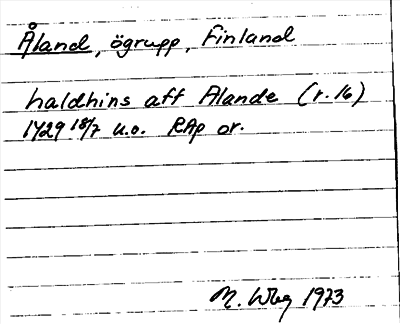 Åland, ögrupp, Finland
haldhins aff Alande (r. 16)
1429 18/7 u.o. RAp or.
M. Wbg 1973